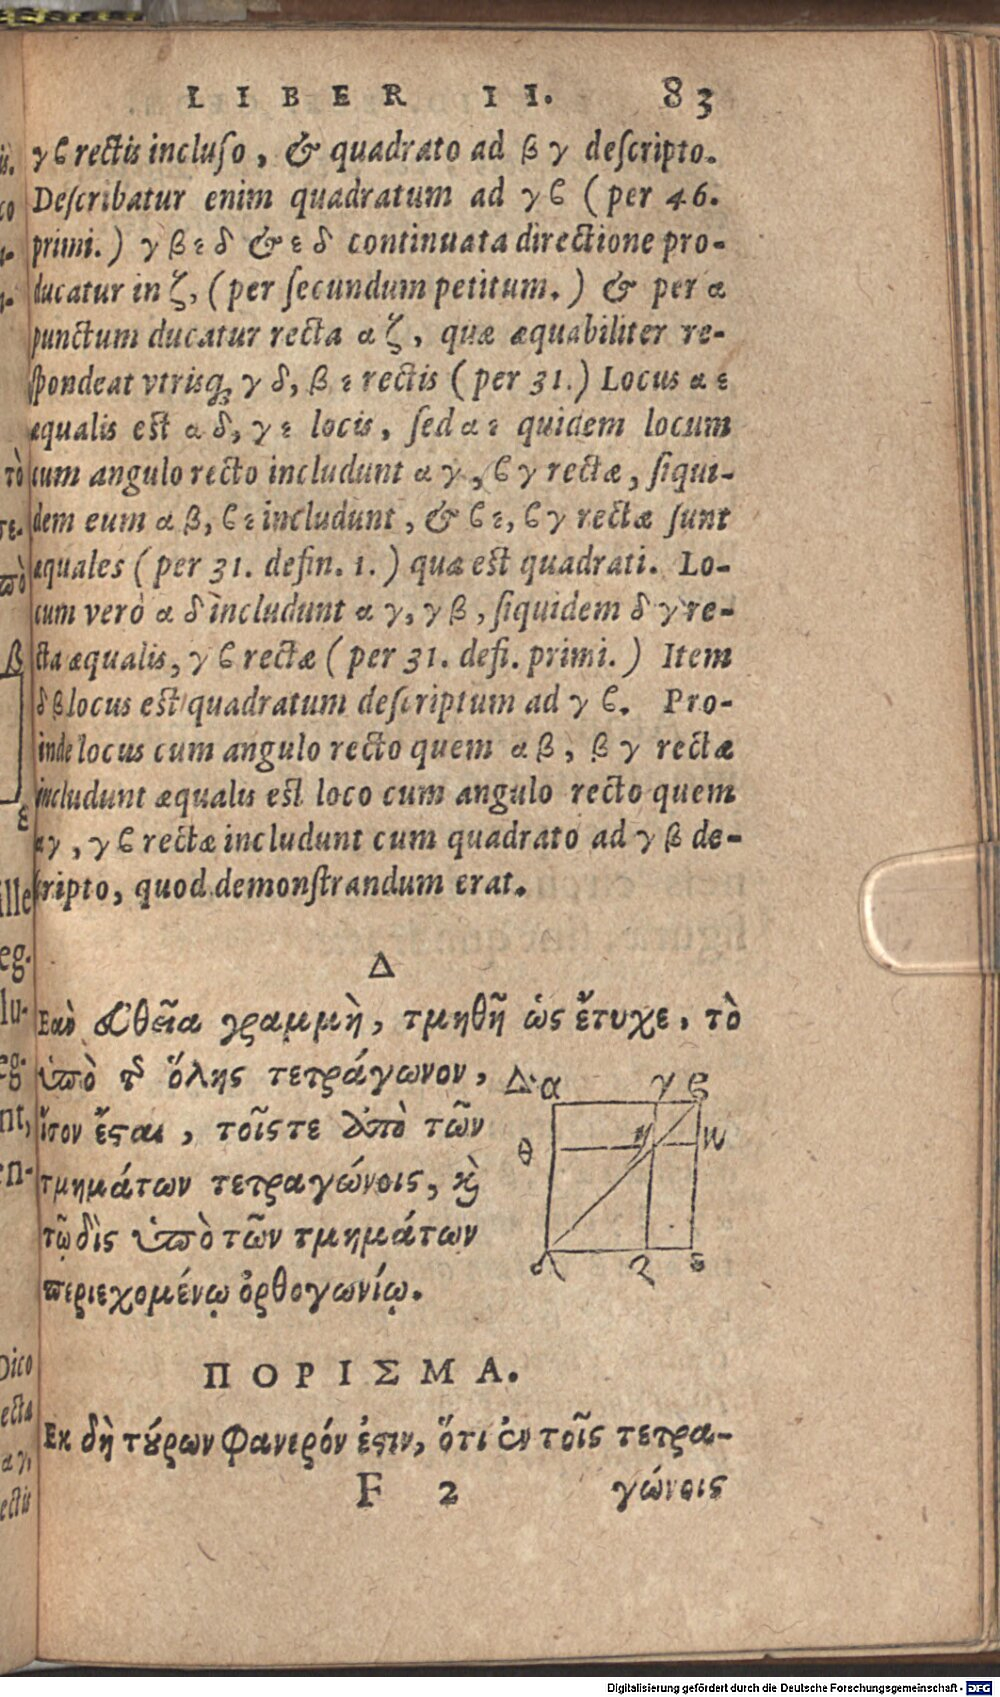 LIBER II. 83
γϐ rectis incluſo, & quadrato ad βγ deſcripto.
Deſcribatur enim quadratum ad γϐ (per 46.
primi.) γβεδ & εδ continuata directione pro-
ducatur in ζ, (per ſecundum petitum.) & per α
punctum ducatur recta αζ, quæ æquabiliter re-
ſpondeat vtrisq; γδ, βε rectis (per 31.) Locus αε
æqualis est αδ, γε locis, ſed αε quidem locum
cum angulo recto includunt αγ, ϐγ rectæ, ſiqui-
dem eum αβ, ϐε includunt, & ϐε, ϐγ rectæ ſunt
æquales (per 31. defin. 1.) quæ est quadrati. Lo-
cum verò αδ includunt αγ, γβ, ſiquidem δγ re-
cta æqualis, γϐ rectæ (per 31. defi. primi.) Item
δβ locus est quadratum deſcriptum ad γϐ. Pro-
inde locus cum angulo recto quem αβ, βγ rectæ
includunt æqualis est loco cum angulo recto quem
αγ, γϐ rectæ includunt cum quadrato ad γβ de-
ſcripto, quod demonſtrandum erat.
Δ
Εὰν εὐθεῖα γραμμὴ, τμηθῆ ὡς ἔτυχε, τὸ
ὑπὸ τῆς ὅλης τετράγωνον,
ἴσον ἔσται, τοῖς τε ἀπὸ τῶν
τμημάτων τετραγώνοις, καὶ
τῷ δὶς ὑπὸ τῶν τμημάτων
περιεχομένῳ ὀρθογωνίῳ.
Δ· α γ ϐ
θ η κ
δ ζ
ΠΟΡΙΣΜΑ.
Εκ δὴ τούτων φανερόν ἐστιν, ὅτι ἐν τοῖς τετρα-
F 2 γώνοις
Digitalisierung gefördert durch die Deutsche Forschungsgemeinschaft - DFG